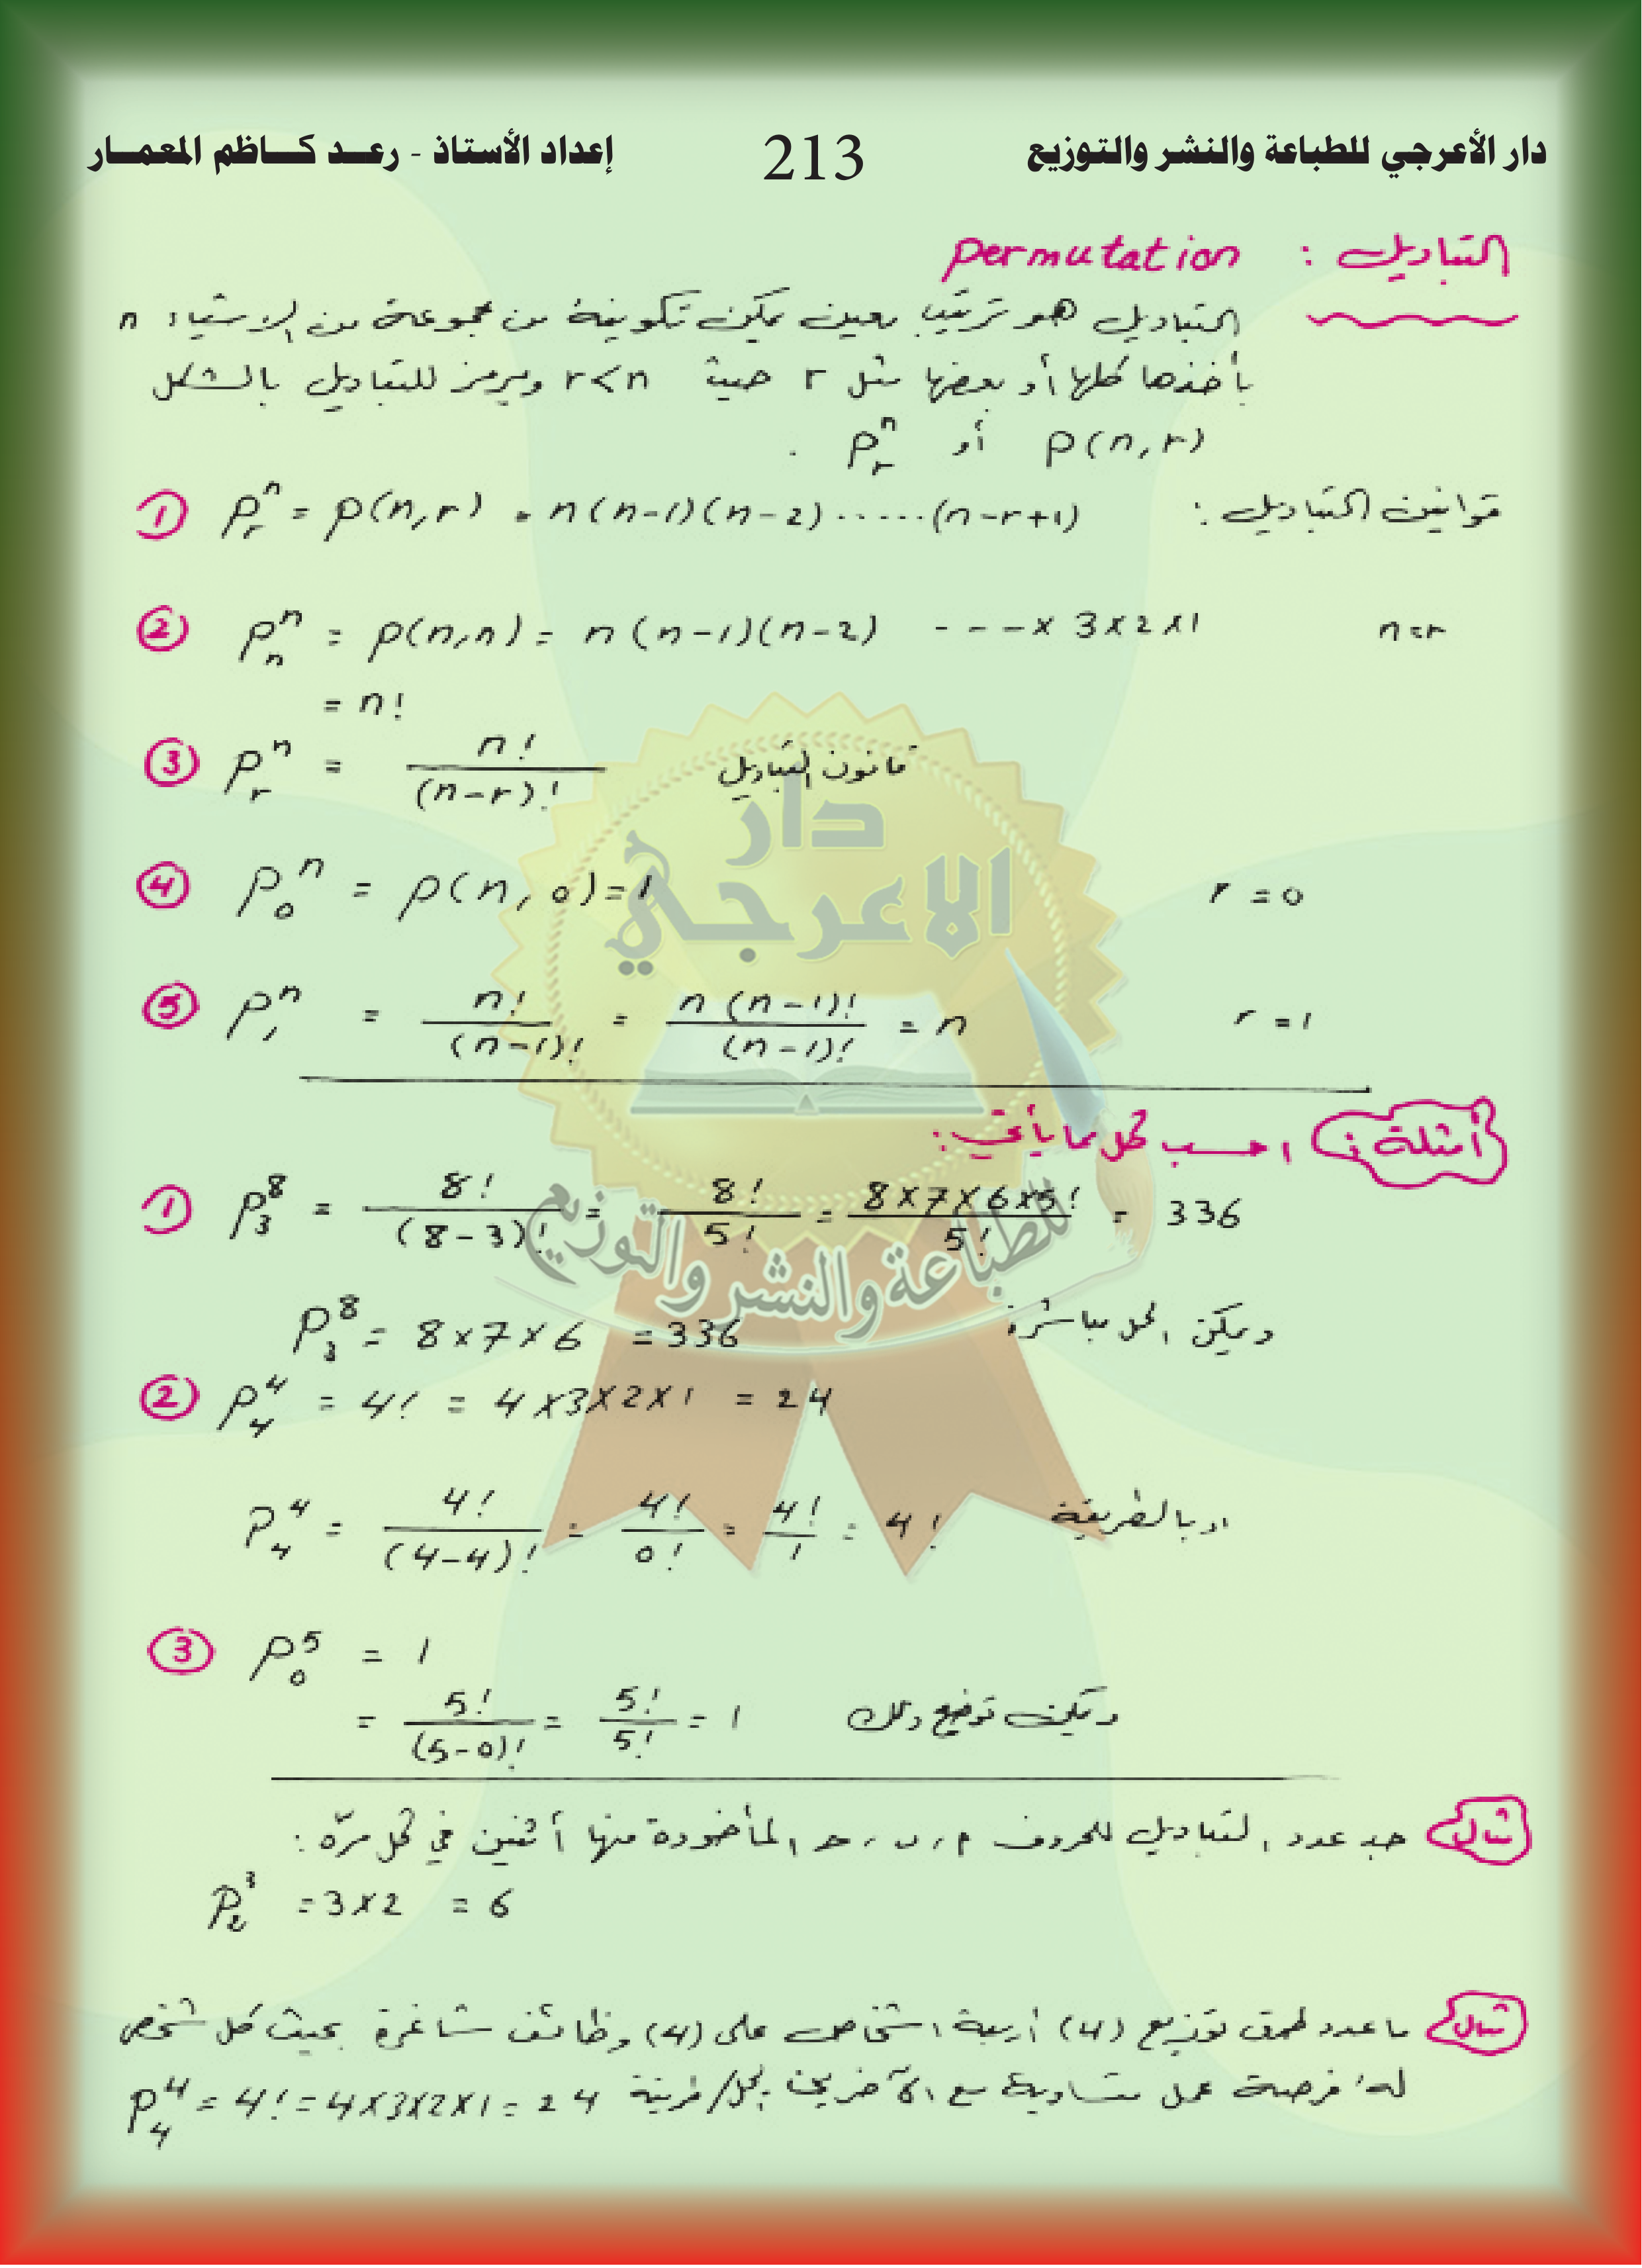 دار الأعرجي للطباعة والنشر والتوزيع 213 إعداد الأستاذ - رعد كاظم المعمار
التباديل : permutation
التباديل هو ترتيب معين يمكن تكوينه من مجموعة من الاشياء n
بأخذها كلها أو بعضها مثل r حيث r<n ويرمز للتباديل بالشكل
P(n,r) أو Pⁿᵣ .
قوانين التباديل :
① Pⁿᵣ = P(n,r) = n(n-1)(n-2)......(n-r+1)
② Pⁿₙ = P(n,n) = n(n-1)(n-2) ---x 3x2x1 n=r
= n!
③ Pⁿᵣ = n!/(n-r)! قانون التباديل
④ Pⁿ₀ = P(n,0)=1 r=0
⑤ Pⁿ₁ = n!/(n-1)! = n(n-1)!/(n-1)! = n r=1
أمثلة : احسب كل مما يأتي :
① P⁸₃ = 8!/(8-3)! = 8!/5! = 8x7x6x5!/5! = 336
P⁸₃ = 8x7x6 = 336 ويمكن الحل مباشرة
② P⁴₄ = 4! = 4x3x2x1 = 24
P⁴₄ = 4!/(4-4)! = 4!/0! = 4!/1 = 4! او بالطريقة
③ P⁵₀ = 1
= 5!/(5-0)! = 5!/5! = 1 ويمكن توضيح ذلك
مثال جد عدد التباديل للحروف م ، ب ، حـ المأخوذة منها أثنين في كل مرّة :
P³₂ = 3x2 = 6
مثال ما عدد طرق توزيع (4) أربعة اشخاص على (4) وظائف شاغرة بحيث كل شخص
له فرصة عمل متساوية مع الآخرين الحل/ طريقة P⁴₄ = 4! = 4x3x2x1 = 24
دار
الاعرجي
للطباعة والنشر والتوزيع